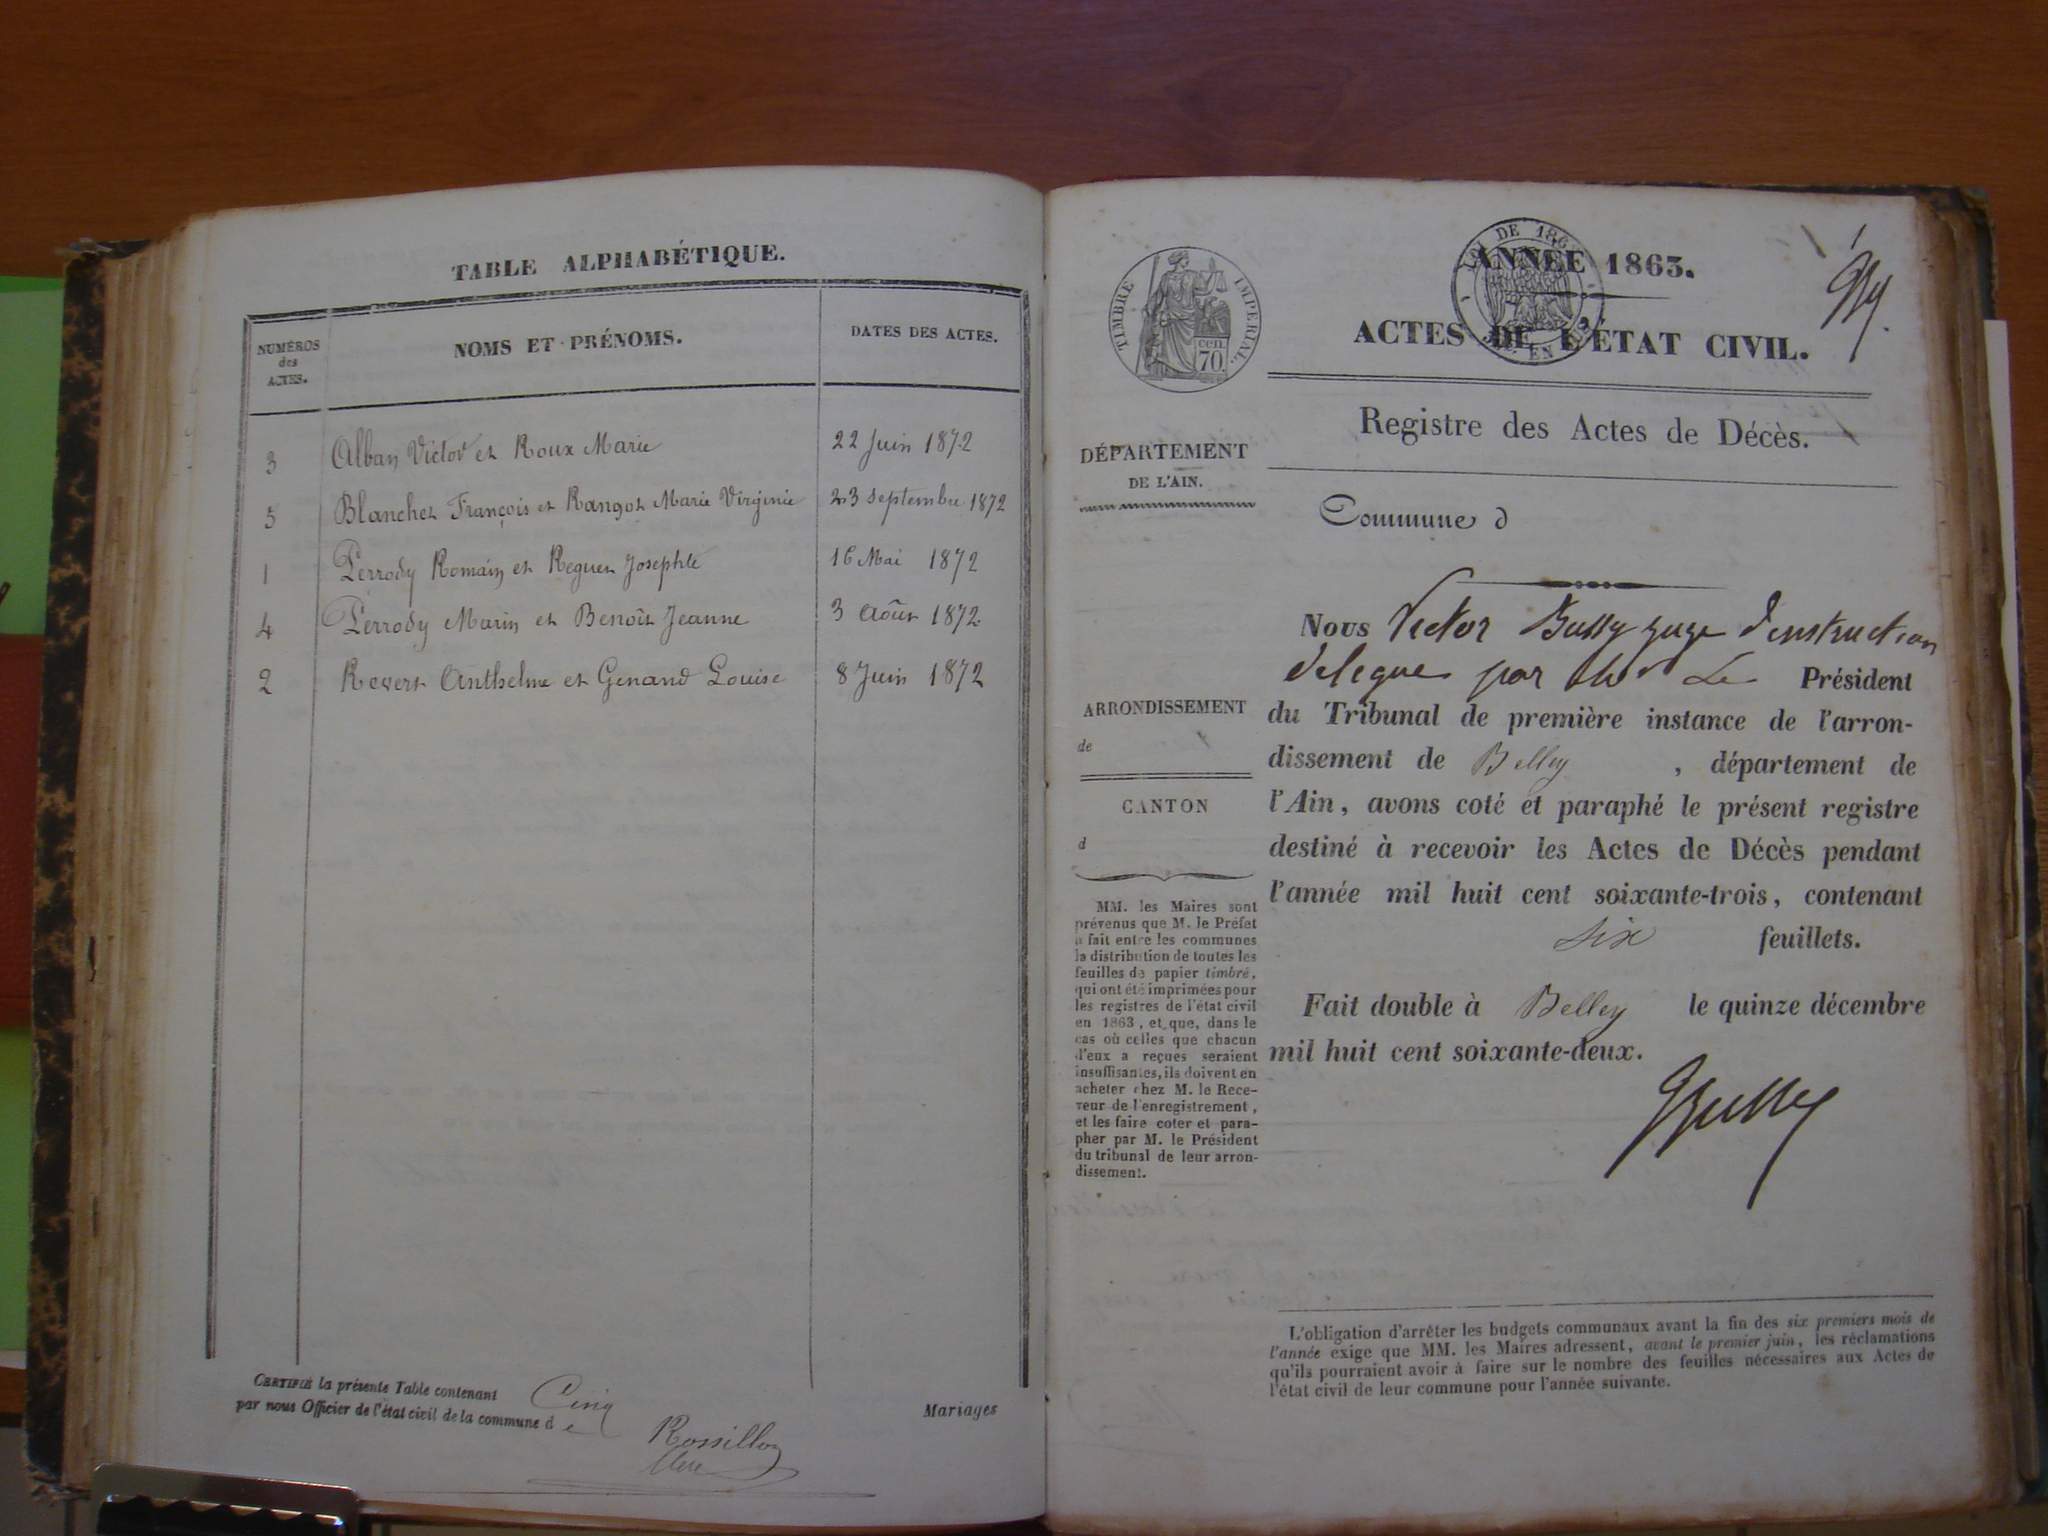 TABLE ALPHABÉTIQUE.
NUMÉROS des ACTES. NOMS ET PRÉNOMS. DATES DES ACTES.
3 Alban Victor et Roux Marie 22 Juin 1872
5 Blanchet François et Rangot Marie Virginie 23 septembre 1872
1 Perrody Romain et Reguet Josephte 16 Mai 1872
4 Perrody Marin et Benoît Jeanne 3 Août 1872
2 Revert Anthelme et Genand Louise 8 Juin 1872
CERTIFIÉ la présente Table contenant Cinq Mariages
par nous Officier de l'état civil de la commune d e
Rossillon
TIMBRE IMPÉRIAL.
cen
70.
LOI DE 1862
EN
ANNÉE 1863.
ACTES DE L'ÉTAT CIVIL.
Registre des Actes de Décès.
DÉPARTEMENT
DE L'AIN.
Commune d
Nous Victor Bussy juge d'instruction
délégué par Mr Le Président
du Tribunal de première instance de l'arron-
dissement de Belley , département de
l'Ain, avons coté et paraphé le présent registre
destiné à recevoir les Actes de Décès pendant
l'année mil huit cent soixante-trois, contenant
six feuillets.
Fait double à Belley le quinze décembre
mil huit cent soixante-deux.
Bussy
ARRONDISSEMENT
de
CANTON
d
MM. les Maires sont
prévenus que M. le Préfet
a fait entre les communes
la distribution de toutes les
feuilles de papier timbré,
qui ont été imprimées pour
les registres de l'état civil
en 1863, et que, dans le
cas où celles que chacun
d'eux a reçues seraient
insuffisantes, ils doivent en
acheter chez M. le Rece-
veur de l'enregistrement,
et les faire coter et para-
pher par M. le Président
du tribunal de leur arron-
dissement.
L'obligation d'arrêter les budgets communaux avant la fin des six premiers mois de
l'année exige que MM. les Maires adressent, avant le premier juin, les réclamations
qu'ils pourraient avoir à faire sur le nombre des feuilles nécessaires aux Actes de
l'état civil de leur commune pour l'année suivante.